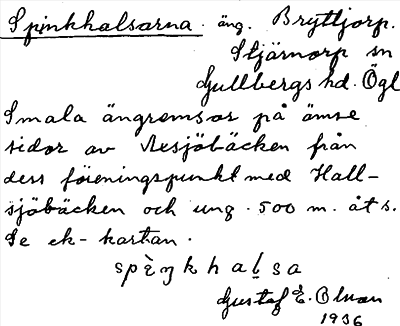 Spinkhalsarna. äng. Bryttjorp.
Stjärnorp sn
Gullbergs hd. Ögl
Smala ängremsor på ömse
sidor av Resjöbäcken från
dess föreningspunkt med Hall-
sjöbäcken och ung. 500 m. åt s.
Se ek-kartan.
spèŋkhalsa
Gustaf E. Olsson
1936